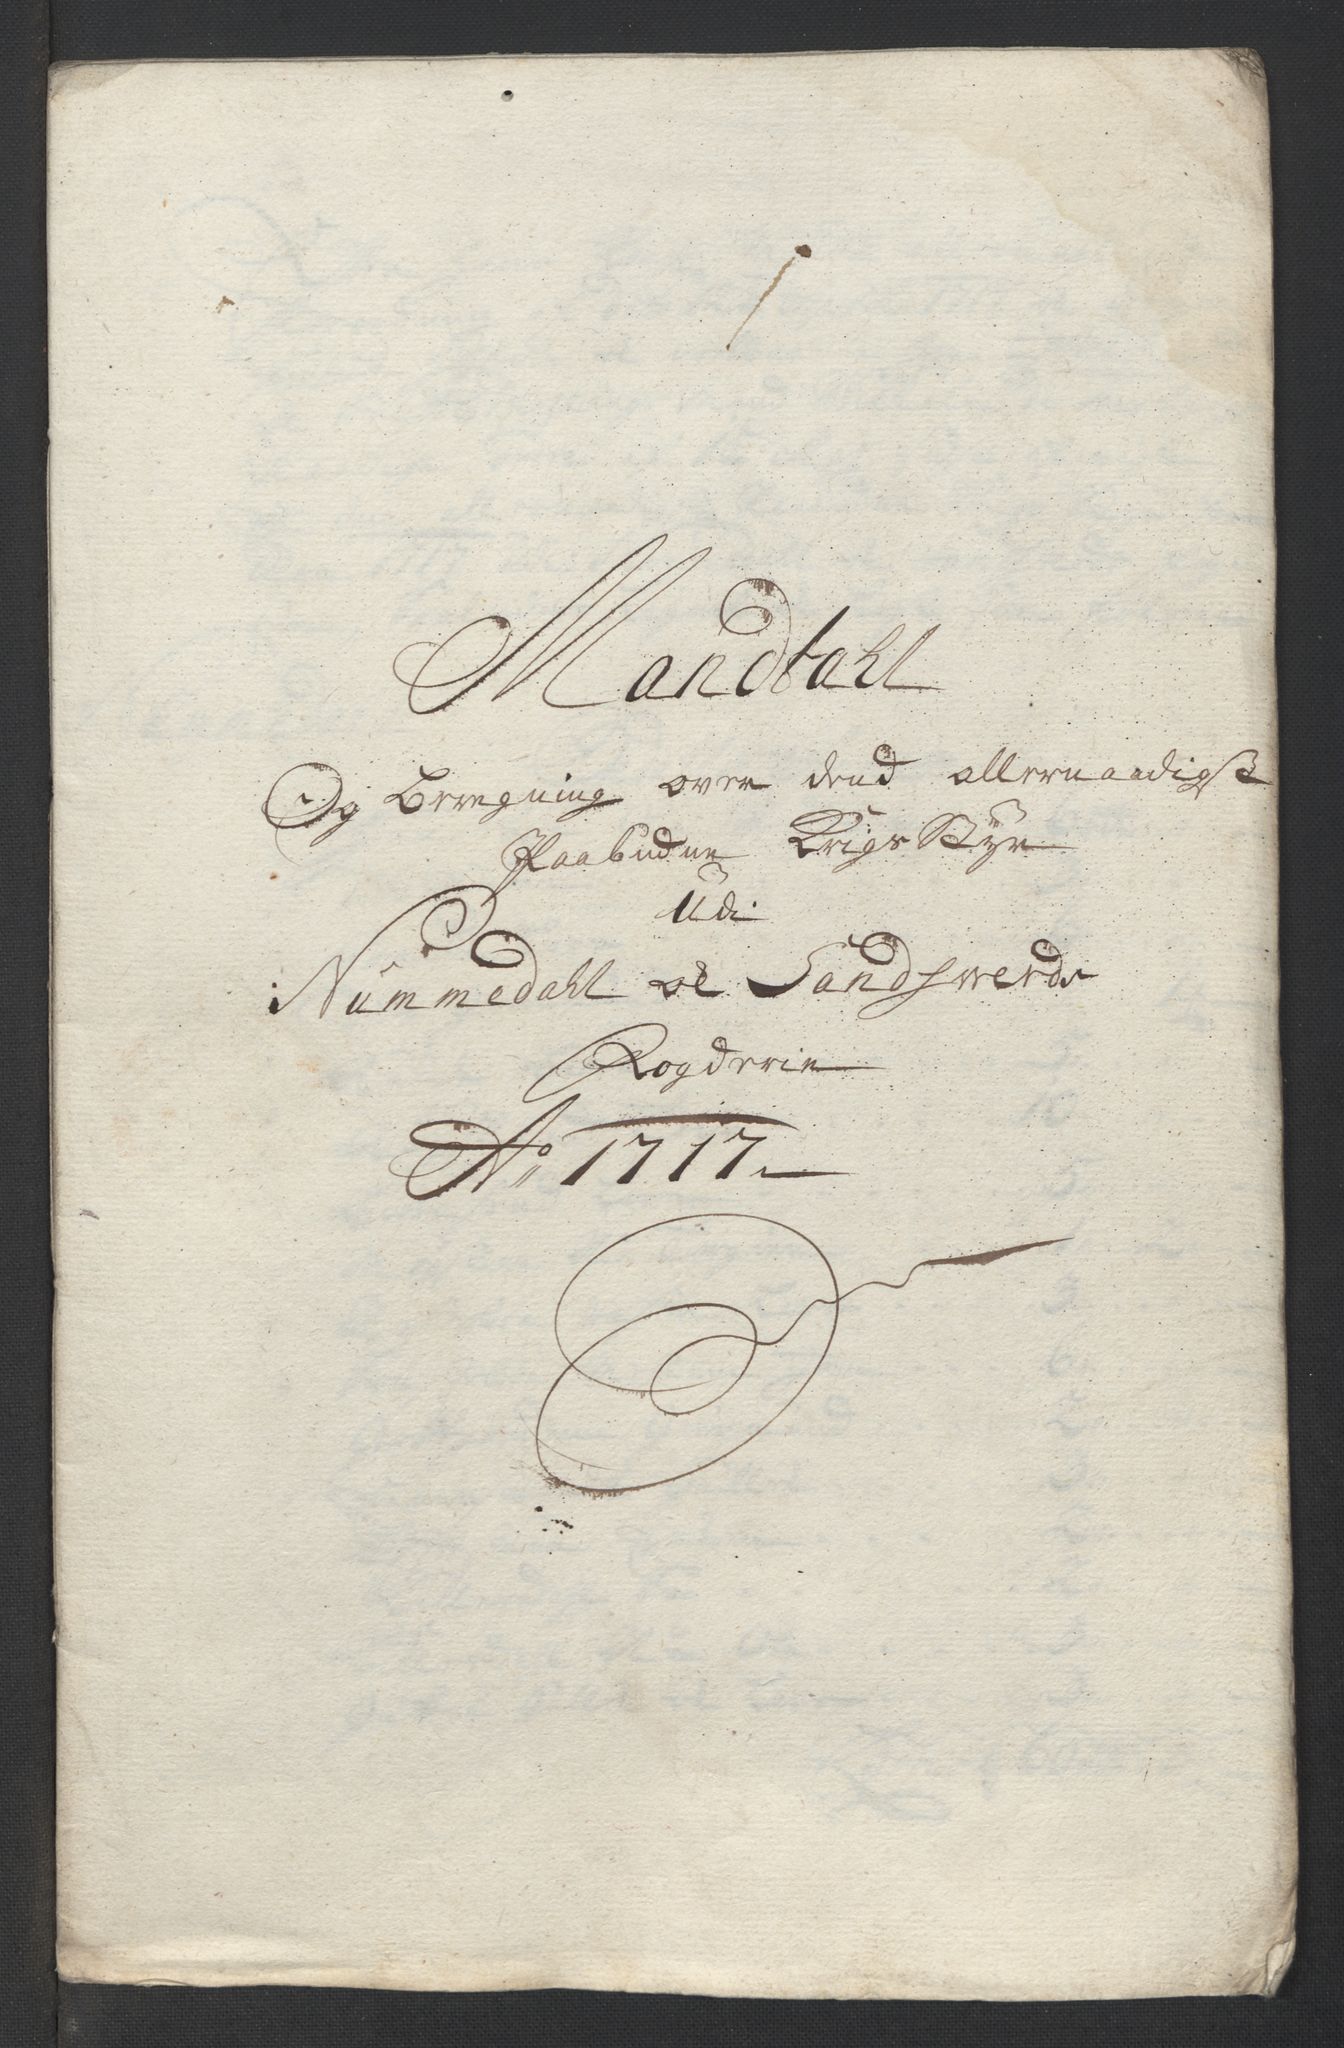 Mandtahl
Og Beregning over dend allernaadigst
Paabudne KrigsStyr
Udi
Nummedahl oc Sandswerds
Fogderie
Ao 1717